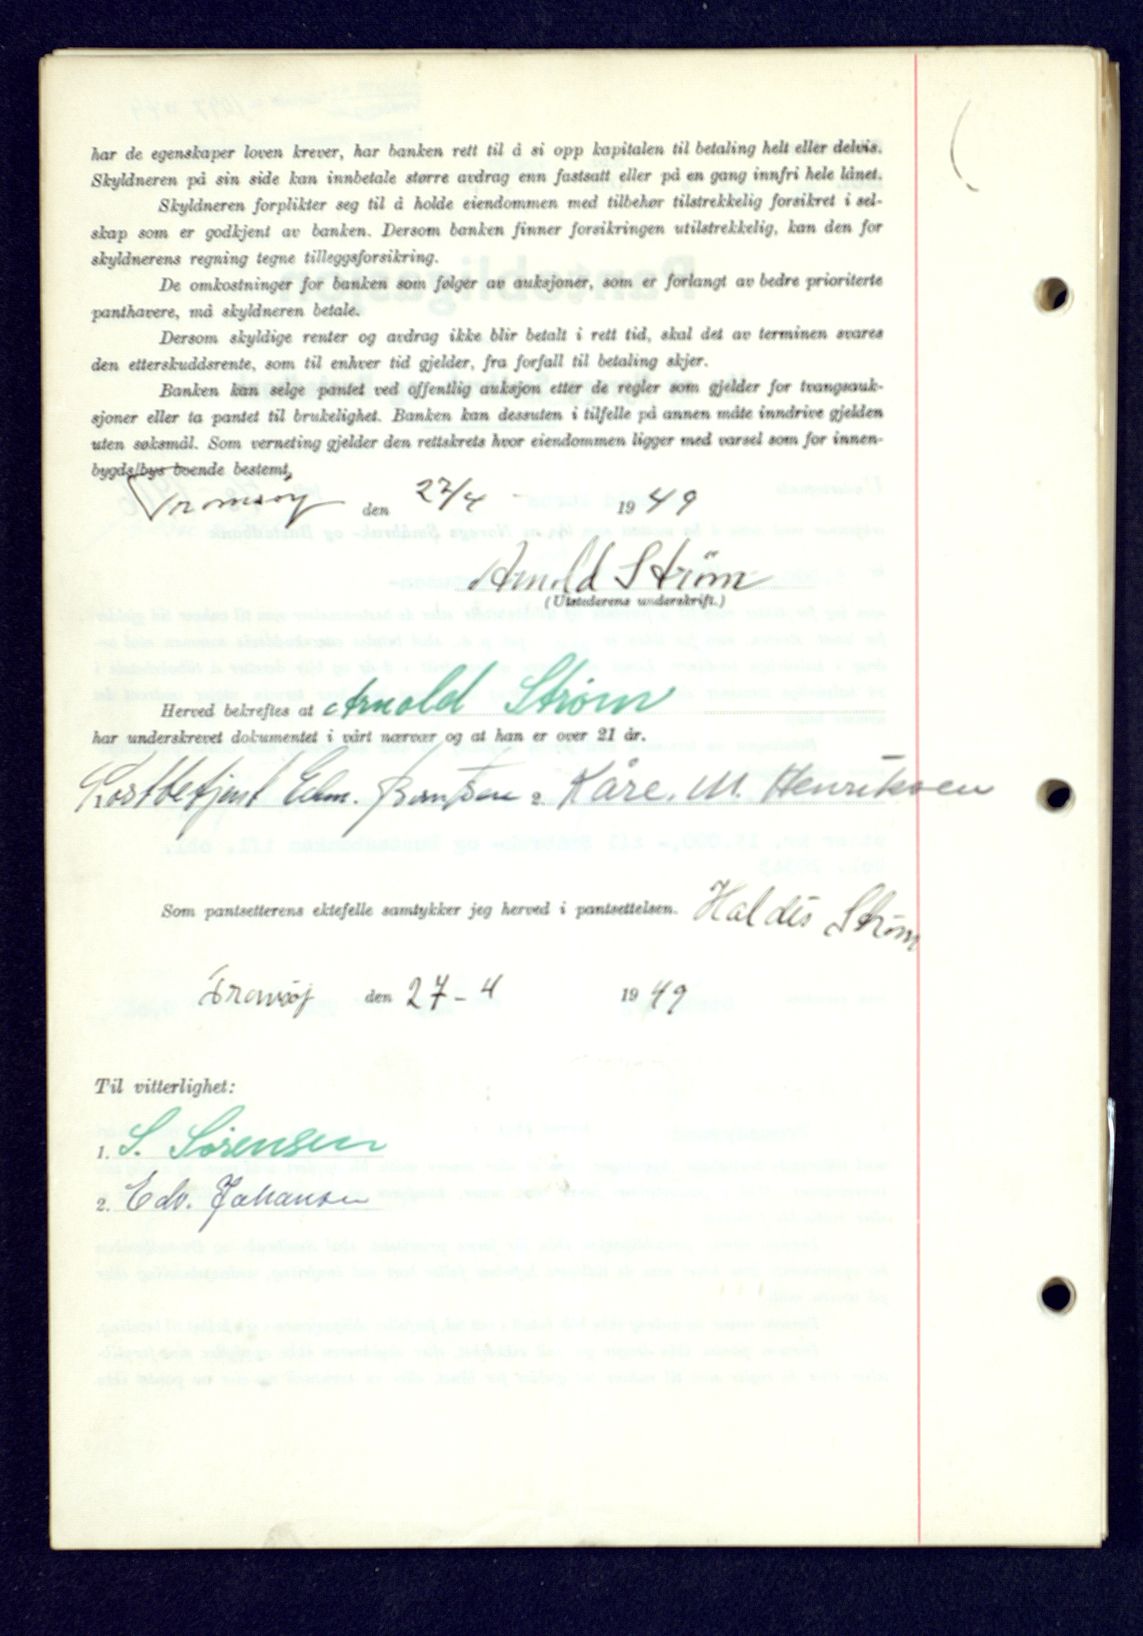 har de egenskaper loven krever, har banken rett til å si opp kapitalen til betaling helt eller delvis.
Skyldneren på sin side kan innbetale større avdrag enn fastsatt eller på en gang innfri hele lånet.
Skyldneren forplikter seg til å holde eiendommen med tilbehør tilstrekkelig forsikret i sel-
skap som er godkjent av banken. Dersom banken finner forsikringen utilstrekkelig, kan den for
skyldnerens regning tegne tilleggsforsikring.
De omkostninger for banken som følger av auksjoner, som er forlangt av bedre prioriterte
panthavere, må skyldneren betale.
Dersom skyldige renter og avdrag ikke blir betalt i rett tid, skal det av terminen svares
den etterskuddsrente, som til enhver tid gjelder, fra forfall til betaling skjer.
Banken kan selge pantet ved offentlig auksjon etter de regler som gjelder for tvangsauk-
sjoner eller ta pantet til brukelighet. Banken kan dessuten i tilfelle på annen måte inndrive gjelden
uten søksmål. Som verneting gjelder den rettskrets hvor eiendommen ligger med varsel som for innen-
bygds/bys boende bestemt.
Tromsøy den 27/4 1949
Arnold Strøm
(Utstederens underskrift.)
Herved bekreftes at Arnold Strøm
har underskrevet dokumentet i vårt nærvær og at han er over 21 år.
Edm. 2. Kåre. M. Henriksen
Som pantsetterens ektefelle samtykker jeg herved i pantsettelsen. Haldis Strøm
Tromsøy den 27-4 1949
Til vitterlighet:
1. S. Sørensen
2. Edv. Johansen